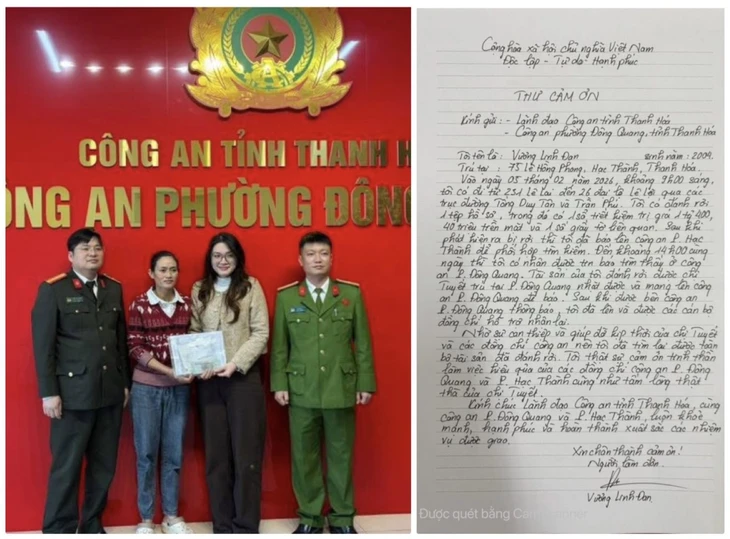 CÔNG AN TỈNH THANH H
ÔNG AN PHƯỜNG ĐÔNG
Cộng hòa xã hội chủ nghĩa Việt Nam
Độc lập - Tự do - Hạnh phúc
THƯ CẢM ƠN
Kính gửi: - Lãnh đạo Công an tỉnh Thanh Hóa
- Công an phường Đông Quang, tỉnh Thanh Hóa
Tôi tên là: Vương Linh Đan sinh năm: 2009.
Trú tại: 75 Lê Hồng Phong, Hạc Thành, Thanh Hóa.
Vào ngày 05 tháng 02 năm 2026, khoảng 9h00 sáng,
tôi có đi từ 231 lê lai đến 26 đại lộ lê lợi qua các
trục đường Tống Duy Tân và Trần Phú. Tôi có đánh rơi
1 tệp hồ sơ, trong đó có 1 số tiền trị giá 1 tỷ 400,
40 triệu tiền mặt và 1 số giấy tờ liên quan. Sau khi
phát hiện ra bị rơi thì tôi đã báo lên công an P. Hạc
Thành để phối hợp tìm kiếm. Đến khoảng 14h00 cùng
ngày thì tôi có nhận được tin báo tìm thấy ở công
an P. Đông Quang. Tài sản của tôi đánh rơi được chị
Tuyết trú tại P. Đông Quang nhặt được và mang lên công
an P. Đông Quang để báo. Sau khi được bên công an
P. Đông Quang thông báo, tôi đã lên và được các cán bộ
đồng chí hỗ trợ nhận lại.
Nhờ sự can thiệp và giúp đỡ kịp thời của chị Tuyết
và các đồng chí công an nên tôi đã tìm lại được toàn
bộ tài sản đã đánh rơi. Tôi thật sự cảm ơn tinh thần
làm việc hiệu quả của các đồng chí công an P. Đông
Quang và P. Hạc Thành cũng như tấm lòng thật
thà của chị Tuyết.
Kính chúc lãnh đạo Công an tỉnh Thanh Hóa, cùng
công an P. Đông Quang và P. Hạc Thành, luôn khỏe
mạnh, hạnh phúc và hoàn thành xuất sắc các nhiệm
vụ được giao.
Xin chân thành cảm ơn!
Người làm đơn.
Vương Linh Đan
Được quét bằng CamScanner